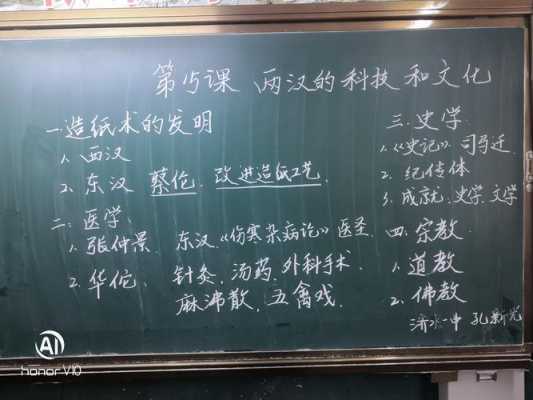 第15课 两汉的科技和文化
一.造纸术的发明
1. 西汉
2. 东汉 蔡伦. 改进造纸工艺.
二. 医学:
1. 张仲景. 东汉.《伤寒杂病论》医圣.
2. 华佗: 针灸, 汤药, 外科手术.
麻沸散, 五禽戏.
三. 史学.
1.《史记》. 司马迁.
2. 纪传体
3. 成就. 史学. 文学
四. 宗教.
1. 道教
2. 佛教
一中 孔新光
AI
honor V10